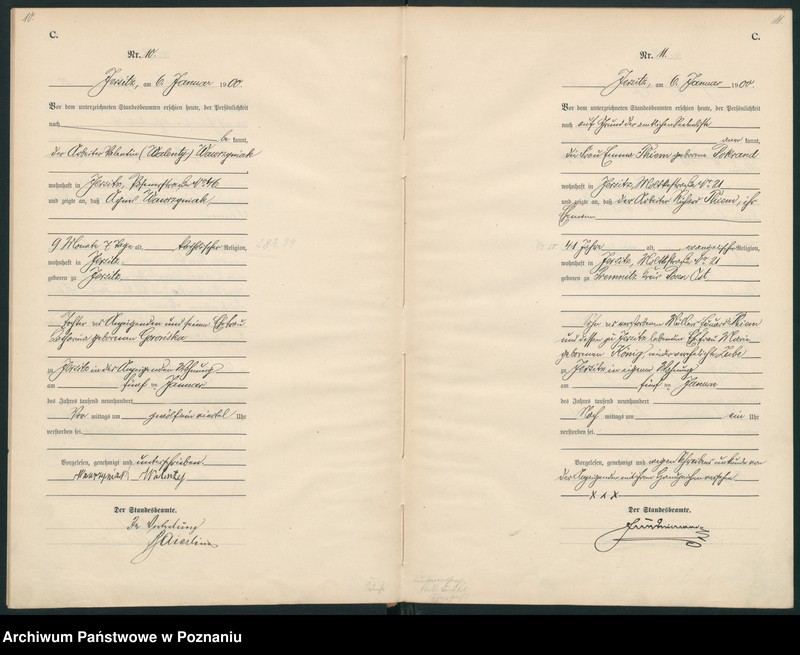 10.
C.
Nr. 10.
Jersitz, am 6. Januar 1900.
Vor dem unterzeichneten Standesbeamten erschien heute, der Persönlichkeit
nach
be kannt,
der Arbeiter Valentin (Walenty) Wawrzyniak
wohnhaft in Jersitz, No 46
und zeigte an, daß Agnes Wawrzyniak,
9 Monate 7 Tage alt, katholischer Religion,
wohnhaft in Jersitz
geboren zu Jersitz
Tochter des Anzeigenden und seiner Ehefrau
geborenen
zu Jersitz in des Anzeigenden Wohnung
am fünften Januar
des Jahres tausend neunhundert
Vor mittags um zwölf ein viertel Uhr
verstorben sei.
Vorgelesen, genehmigt und unterschrieben.
Wawrzyniak Walenty
Der Standesbeamte.
In Vertretung
11.
C.
Nr. 11.
Jersitz, am 6. Januar 1900.
Vor dem unterzeichneten Standesbeamten erschien heute, der Persönlichkeit
nach auf Grund der
aner kannt,
die Frau Emma Thiem geborene Pokrand
wohnhaft in Jersitz, Moltkestraße No 21
und zeigte an, daß der Arbeiter Thiem, ihr
Ehemann
41 Jahre alt, evangelischer Religion,
wohnhaft in Jersitz, Moltkestraße No 21
geboren zu Kreis Posen Ost,
Sohn des verstorbenen Müller Eduard Thiem
und dessen zu Jersitz lebenden Ehefrau Marie
geborenen König,
zu Jersitz in eigener Wohnung
am fünften Januar
des Jahres tausend neunhundert
Nach mittags um ein Uhr
verstorben sei.
Vorgelesen, genehmigt und wegen Schreibensunkunde von
der Anzeigenden mit ihrem Handzeichen versehen
x x x
Der Standesbeamte.
Archiwum Państwowe w Poznaniu